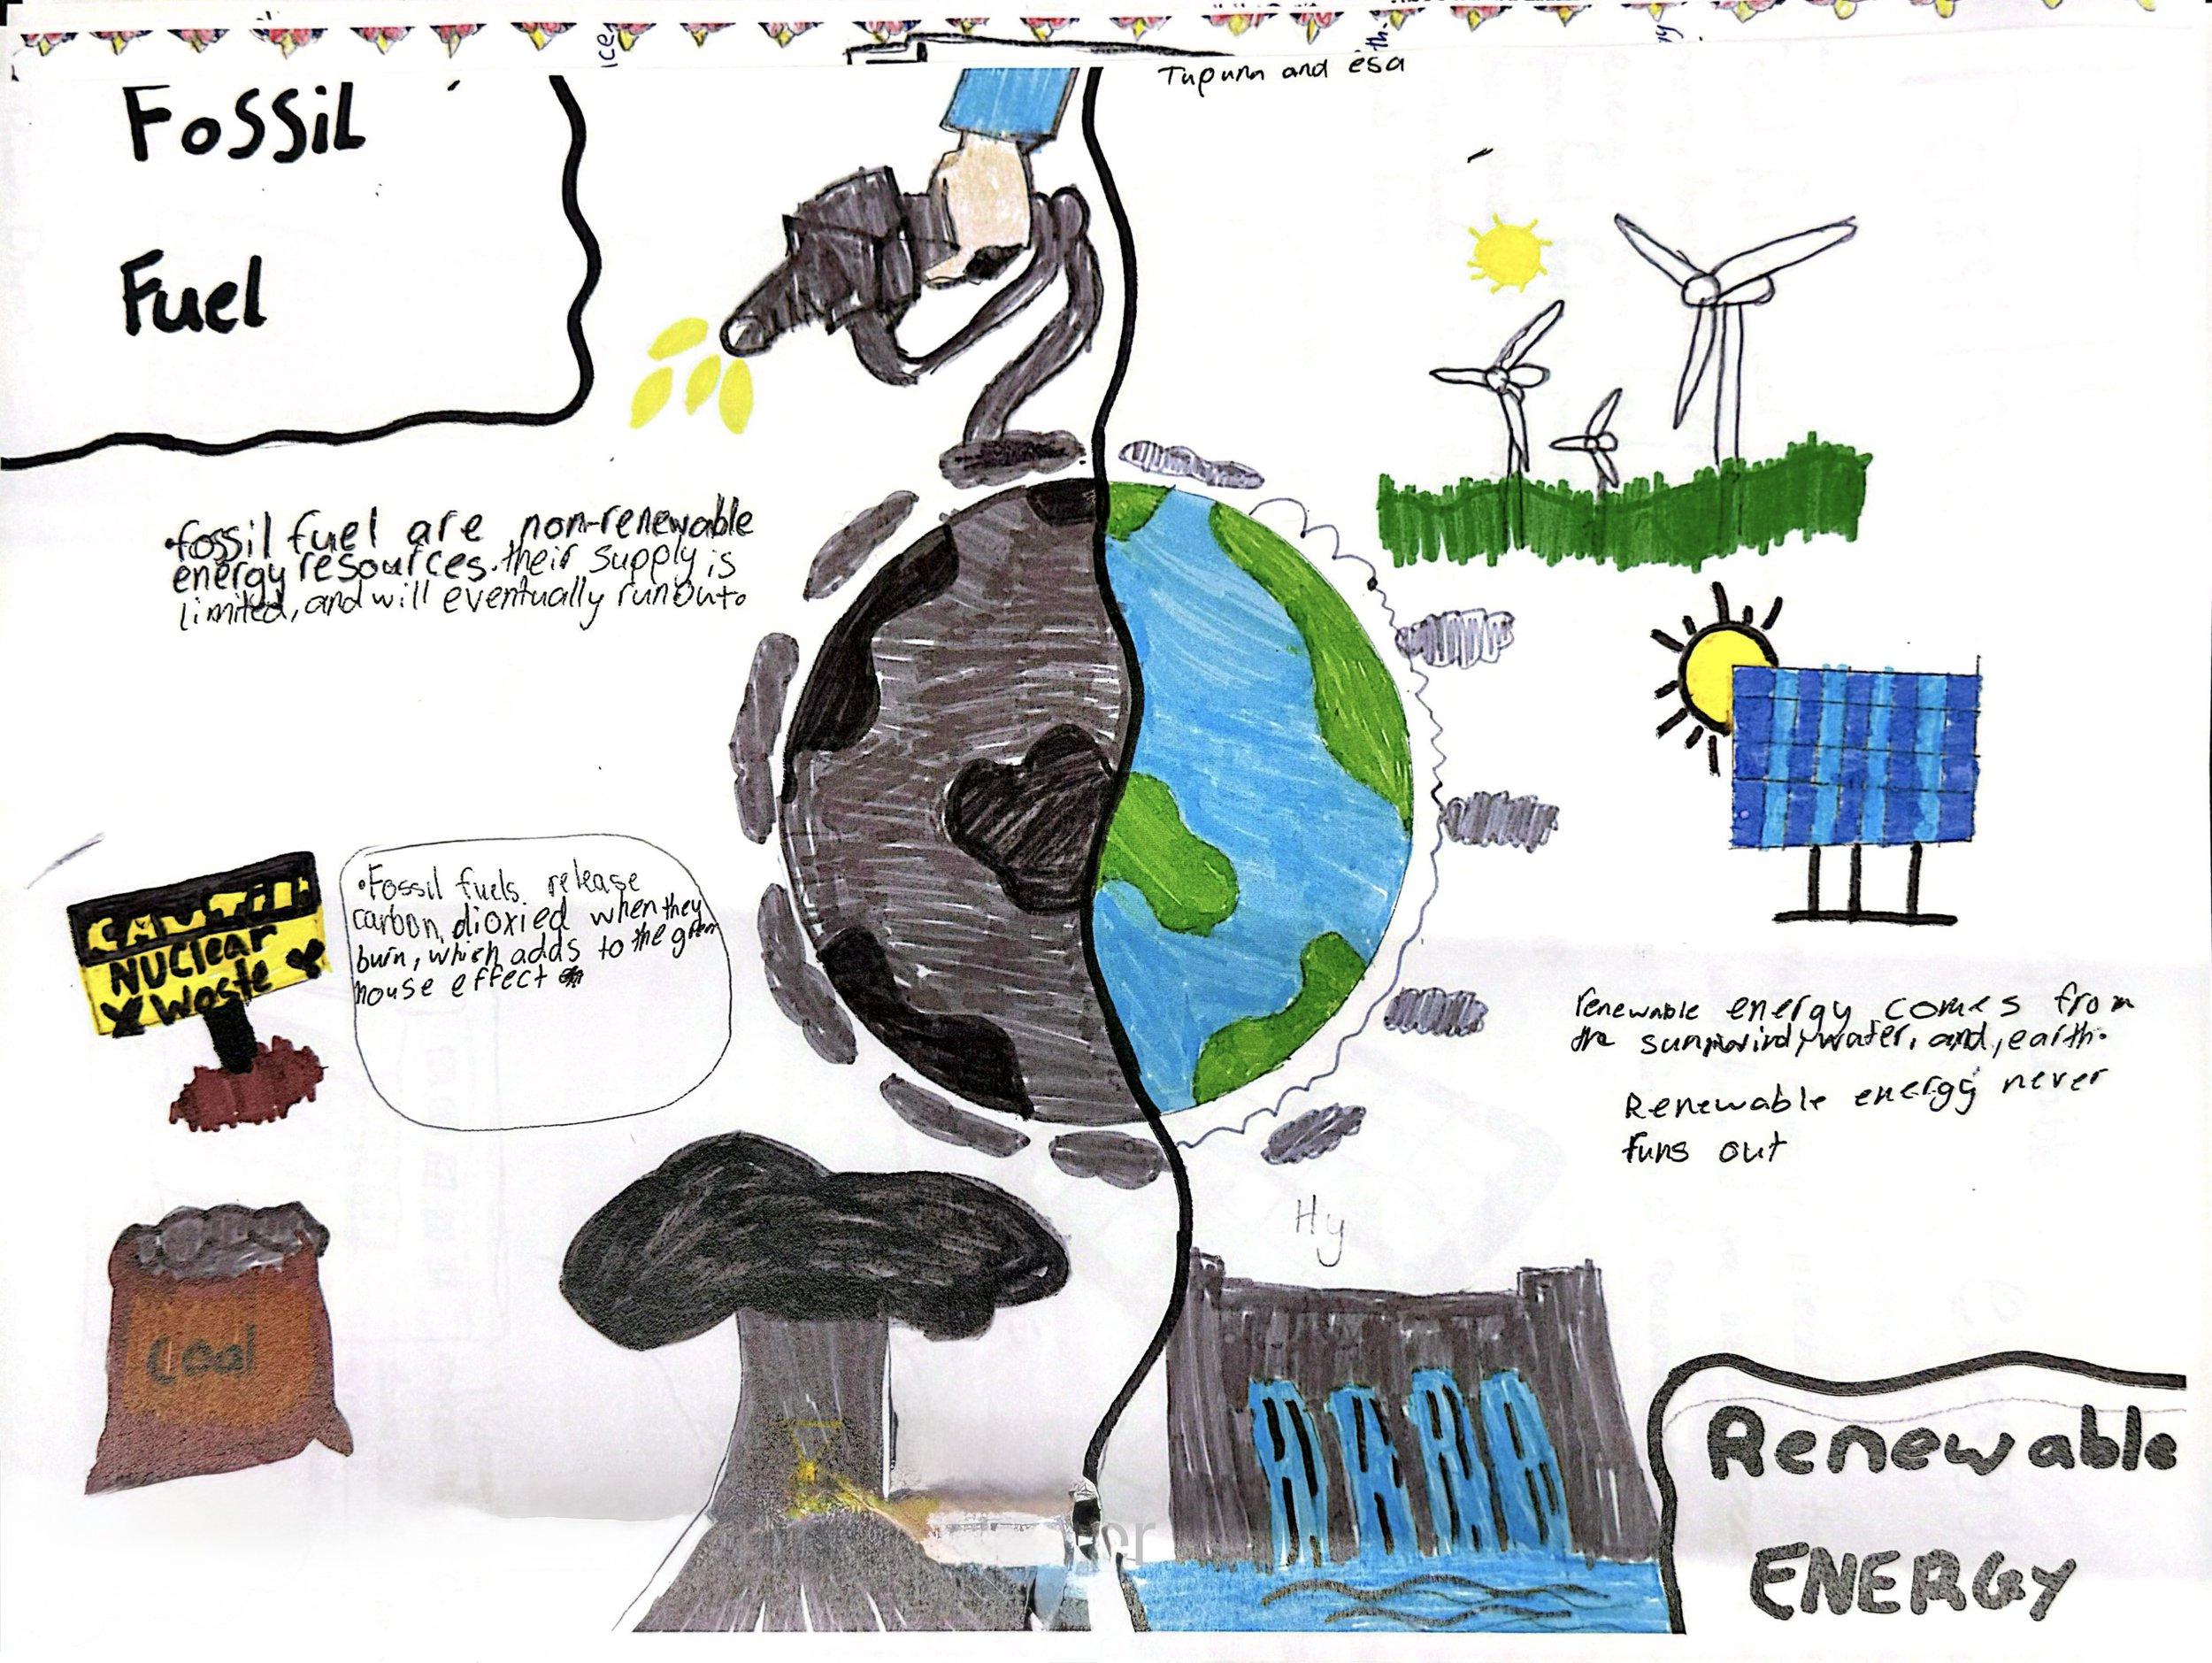 Tupuna and esa
Fossil
Fuel
•fossil fuel are non-renewable
energy resources. their supply is
limited, and will eventually run out.
CAUTION
NUClear
Waste
•Fossil fuels release
carbon dioxied when they
burn, which adds to the green
house effect
Coal
renewable energy comes from
the sun, wind, water, and, earth.
Renewable energy never
runs out
Hy
Renewable
ENERGY